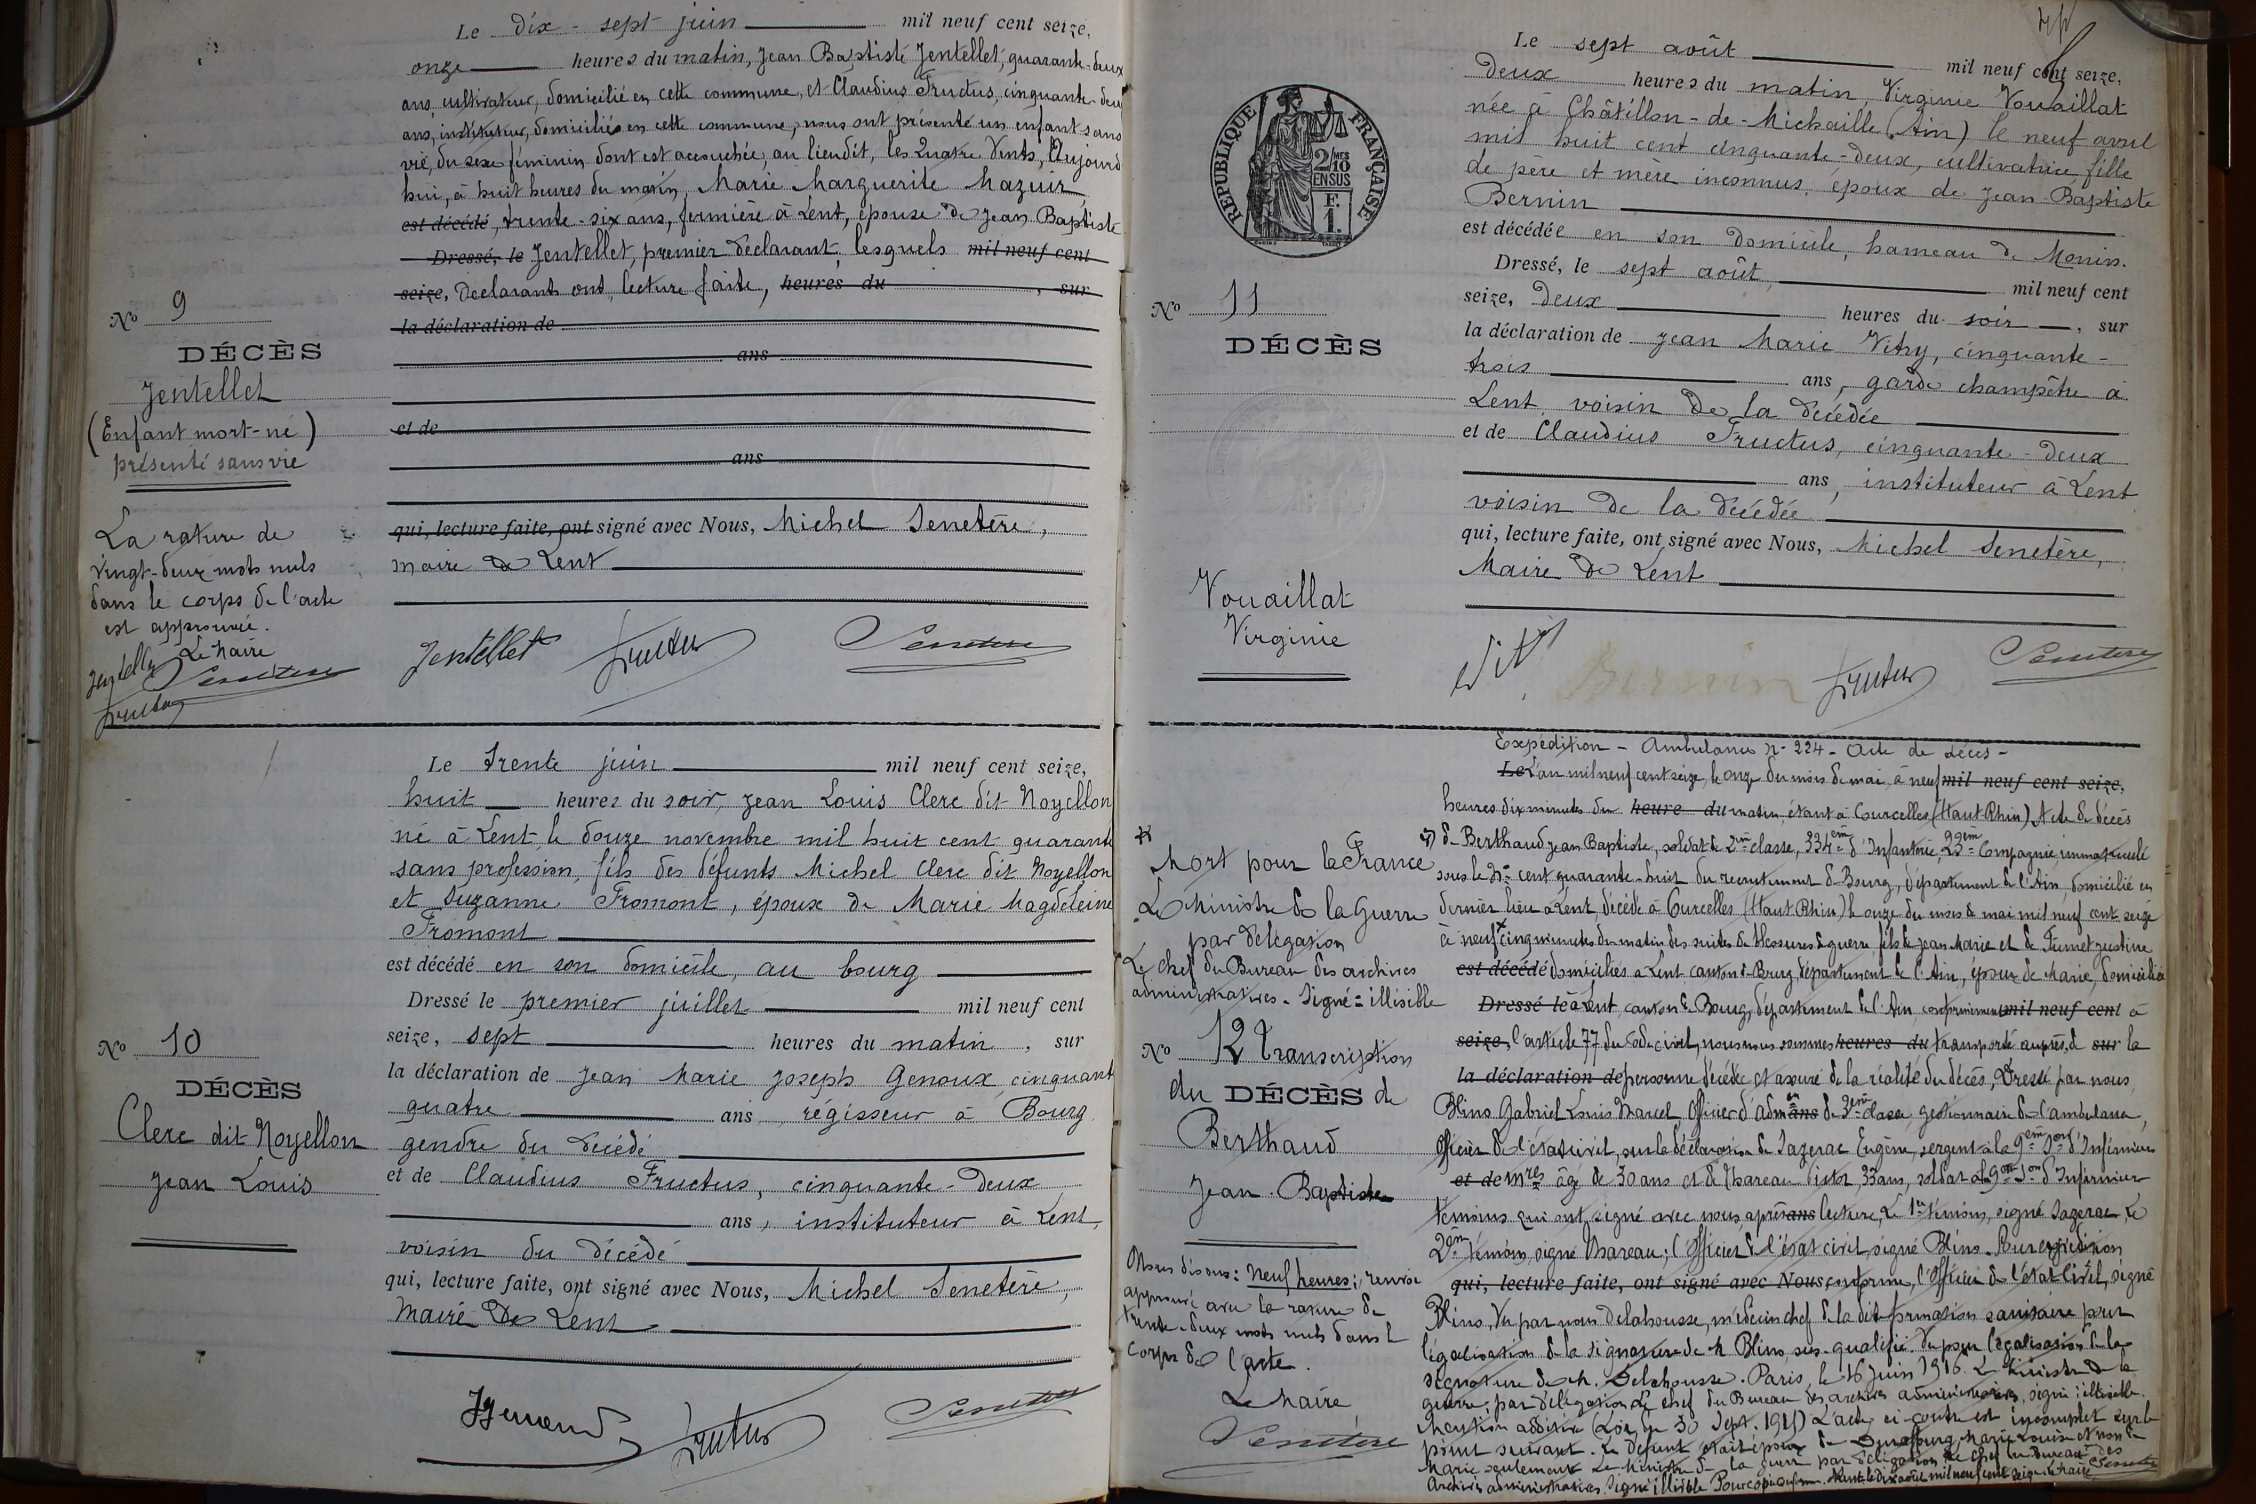 Le dix-sept juin mil neuf cent seize,
onze heures du matin, Jean Baptiste Jentellet, quarante-deux
ans cultivateur, domicilié en cette commune, et Claudius Fructus, cinquante-deux
ans, instituteur, domiciliés en cette commune, nous ont présenté un enfant sans
vie, du sexe féminin dont est accouchée, au lieu dit, les Quatre Vents, Aujourd
hui, à huit heures du matin, Marie Marguerite Mazuir,
est décédé, trente-six ans, fermière à Lent, épouse de Jean Baptiste
Dressé, le Jentellet, premier déclarant, lesquels mil neuf cent
seize, déclarants ont, lecture faite, heures du , sur
la déclaration de
ans
et de
ans
qui, lecture faite, ont signé avec Nous, Michel Senetère,
maire de Lent
Jentellet Fructus Senetere
No 9
DÉCÈS
Jentellet
(Enfant mort-né)
présenté sans vie
La rature de
vingt-deux mots nuls
dans le corps de l'acte
est approuvée.
Le Maire
Jentellet Senetere
Fructus
Le trente juin mil neuf cent seize,
huit heures du soir, Jean Louis Clerc dit Noyellon
né à Lent, le douze novembre mil huit cent quarante
sans profession, fils des défunts Michel Clerc dit Noyellon
et Suzanne Fromont, époux de Marie Magdeleine
Fromont
est décédé en son domicile, au bourg
Dressé le premier juillet mil neuf cent
seize, sept heures du matin, sur
la déclaration de Jean Marie Joseph Genoux cinquante
quatre ans, régisseur à Bourg
gendre du décédé
et de Claudius Fructus, cinquante-deux
ans, instituteur à Lent,
voisin du décédé
qui, lecture faite, ont signé avec Nous, Michel Senetère,
Maire de Lent
Fructus Senetere
No 10
DÉCÈS
Clerc dit Noyellon
Jean Louis
RÉPUBLIQUE FRANÇAISE
2/10 MES
EN SUS
F.
1.
Le sept août mil neuf cent seize,
deux heures du matin, Virginie Vouaillat
née à Châtillon-de-Michaille (Ain) le neuf avril
mil huit cent cinquante-deux, cultivatrice fille
de père et mère inconnus, époux de Jean-Baptiste
Bernin
est décédée en son domicile, hameau de Monin.
Dressé, le sept août, mil neuf cent
seize, deux heures du soir, sur
la déclaration de Jean Marie Vitry, cinquante-
trois ans, garde champêtre à
Lent, voisin de la décédée
et de Claudius Fructus, cinquante-deux
ans, instituteur à Lent
voisin de la décédée
qui, lecture faite, ont signé avec Nous, Michel Senetère,
Maire de Lent
Bernin Fructus Senetere
No 11
DÉCÈS
Vouaillat
Virginie
Expédition - Ambulance No 224 - Acte de décès -
Le L'an mil neuf cent seize, le onze du mois de mai, à neuf mil neuf cent seize,
heures dix minutes du heure du matin, étant à Courcelles (Haut Rhin) Acte de décès
de Berthaud Jean Baptiste, soldat de 2me classe, 334ème d'Infanterie, 23ème Compagnie, immatriculé
sous le No cent quarante-huit du recrutement de Bourg, département de l'Ain, domicilié en
dernier lieu à Lent, décédé à Courcelles (Haut Rhin) le onze du mois de mai mil neuf cent seize
à neuf cinq minutes du matin des suites de blessures de guerre, fils de Jean Marie et de Fumet Justine
est décédé domiciliés à Lent canton de Bourg, département de l'Ain, époux de Marie, domiciliée
Dressé le à Lent, canton de Bourg, département de l'Ain, conformément mil neuf cent à
seize, l'article 77 du Code civil, nous nous sommes heures du transporté auprès de sur la
la déclaration de personne décédée et assuré de la réalité du décès, Dressé par nous
Blins Gabriel Louis Marcel, Officier d'admon ans de 3ème classe, gestionnaire de l'ambulance,
Officier de l'état civil, sur la déclaration de Jazerac Eugène, sergent à la 9ème Son d'Infirmiers
et de mres âgé de 30 ans et de Thareau, 33 ans, soldat à la 9ème Son d'Infirmiers
témoins qui ont signé avec nous, après ans lecture, Le 1er témoin, signé Jazerac, Le
2ème témoin, signé Thareau; l'Officier de l'état civil, signé Blins. Pour expédition
qui, lecture faite, ont signé avec Nous, conforme, l'Officier de l'état civil, signé
Blins. Vu par nous Delahousse, médecin chef de la dite formation sanitaire pour
légalisation de la signature de M. Blins, sus-qualifié. Vu pour légalisation de la
signature de M. Delahousse. Paris, le 16 juin 1916. Le Ministre de la
guerre, par délégation, le chef du Bureau des archives administratives, signé: illisible.
Mention additive (Loi du 30 Sept. 1915) L'acte ci-contre est incomplet sur le
point suivant. Le défunt était époux de Marie Louise et non de
Marie seulement Le Ministre de la guerre par délégation, Le Chef du Bureau des
Archives administratives. Signé illisible Pour copie conforme. le dix août mil neuf cent seize. Le Maire Senetere
Mort pour la France
Le Ministre de la Guerre
par délégation
Le chef du Bureau des archives
administratives - Signé = illisible
No 12 Transcription
du DÉCÈS de
Berthaud
Jean-Baptiste
Nous disons: Neuf heures; renvoi
approuvé avec la rature de
trente-deux mots nuls dans le
corps de l'acte.
Le Maire
Senetere